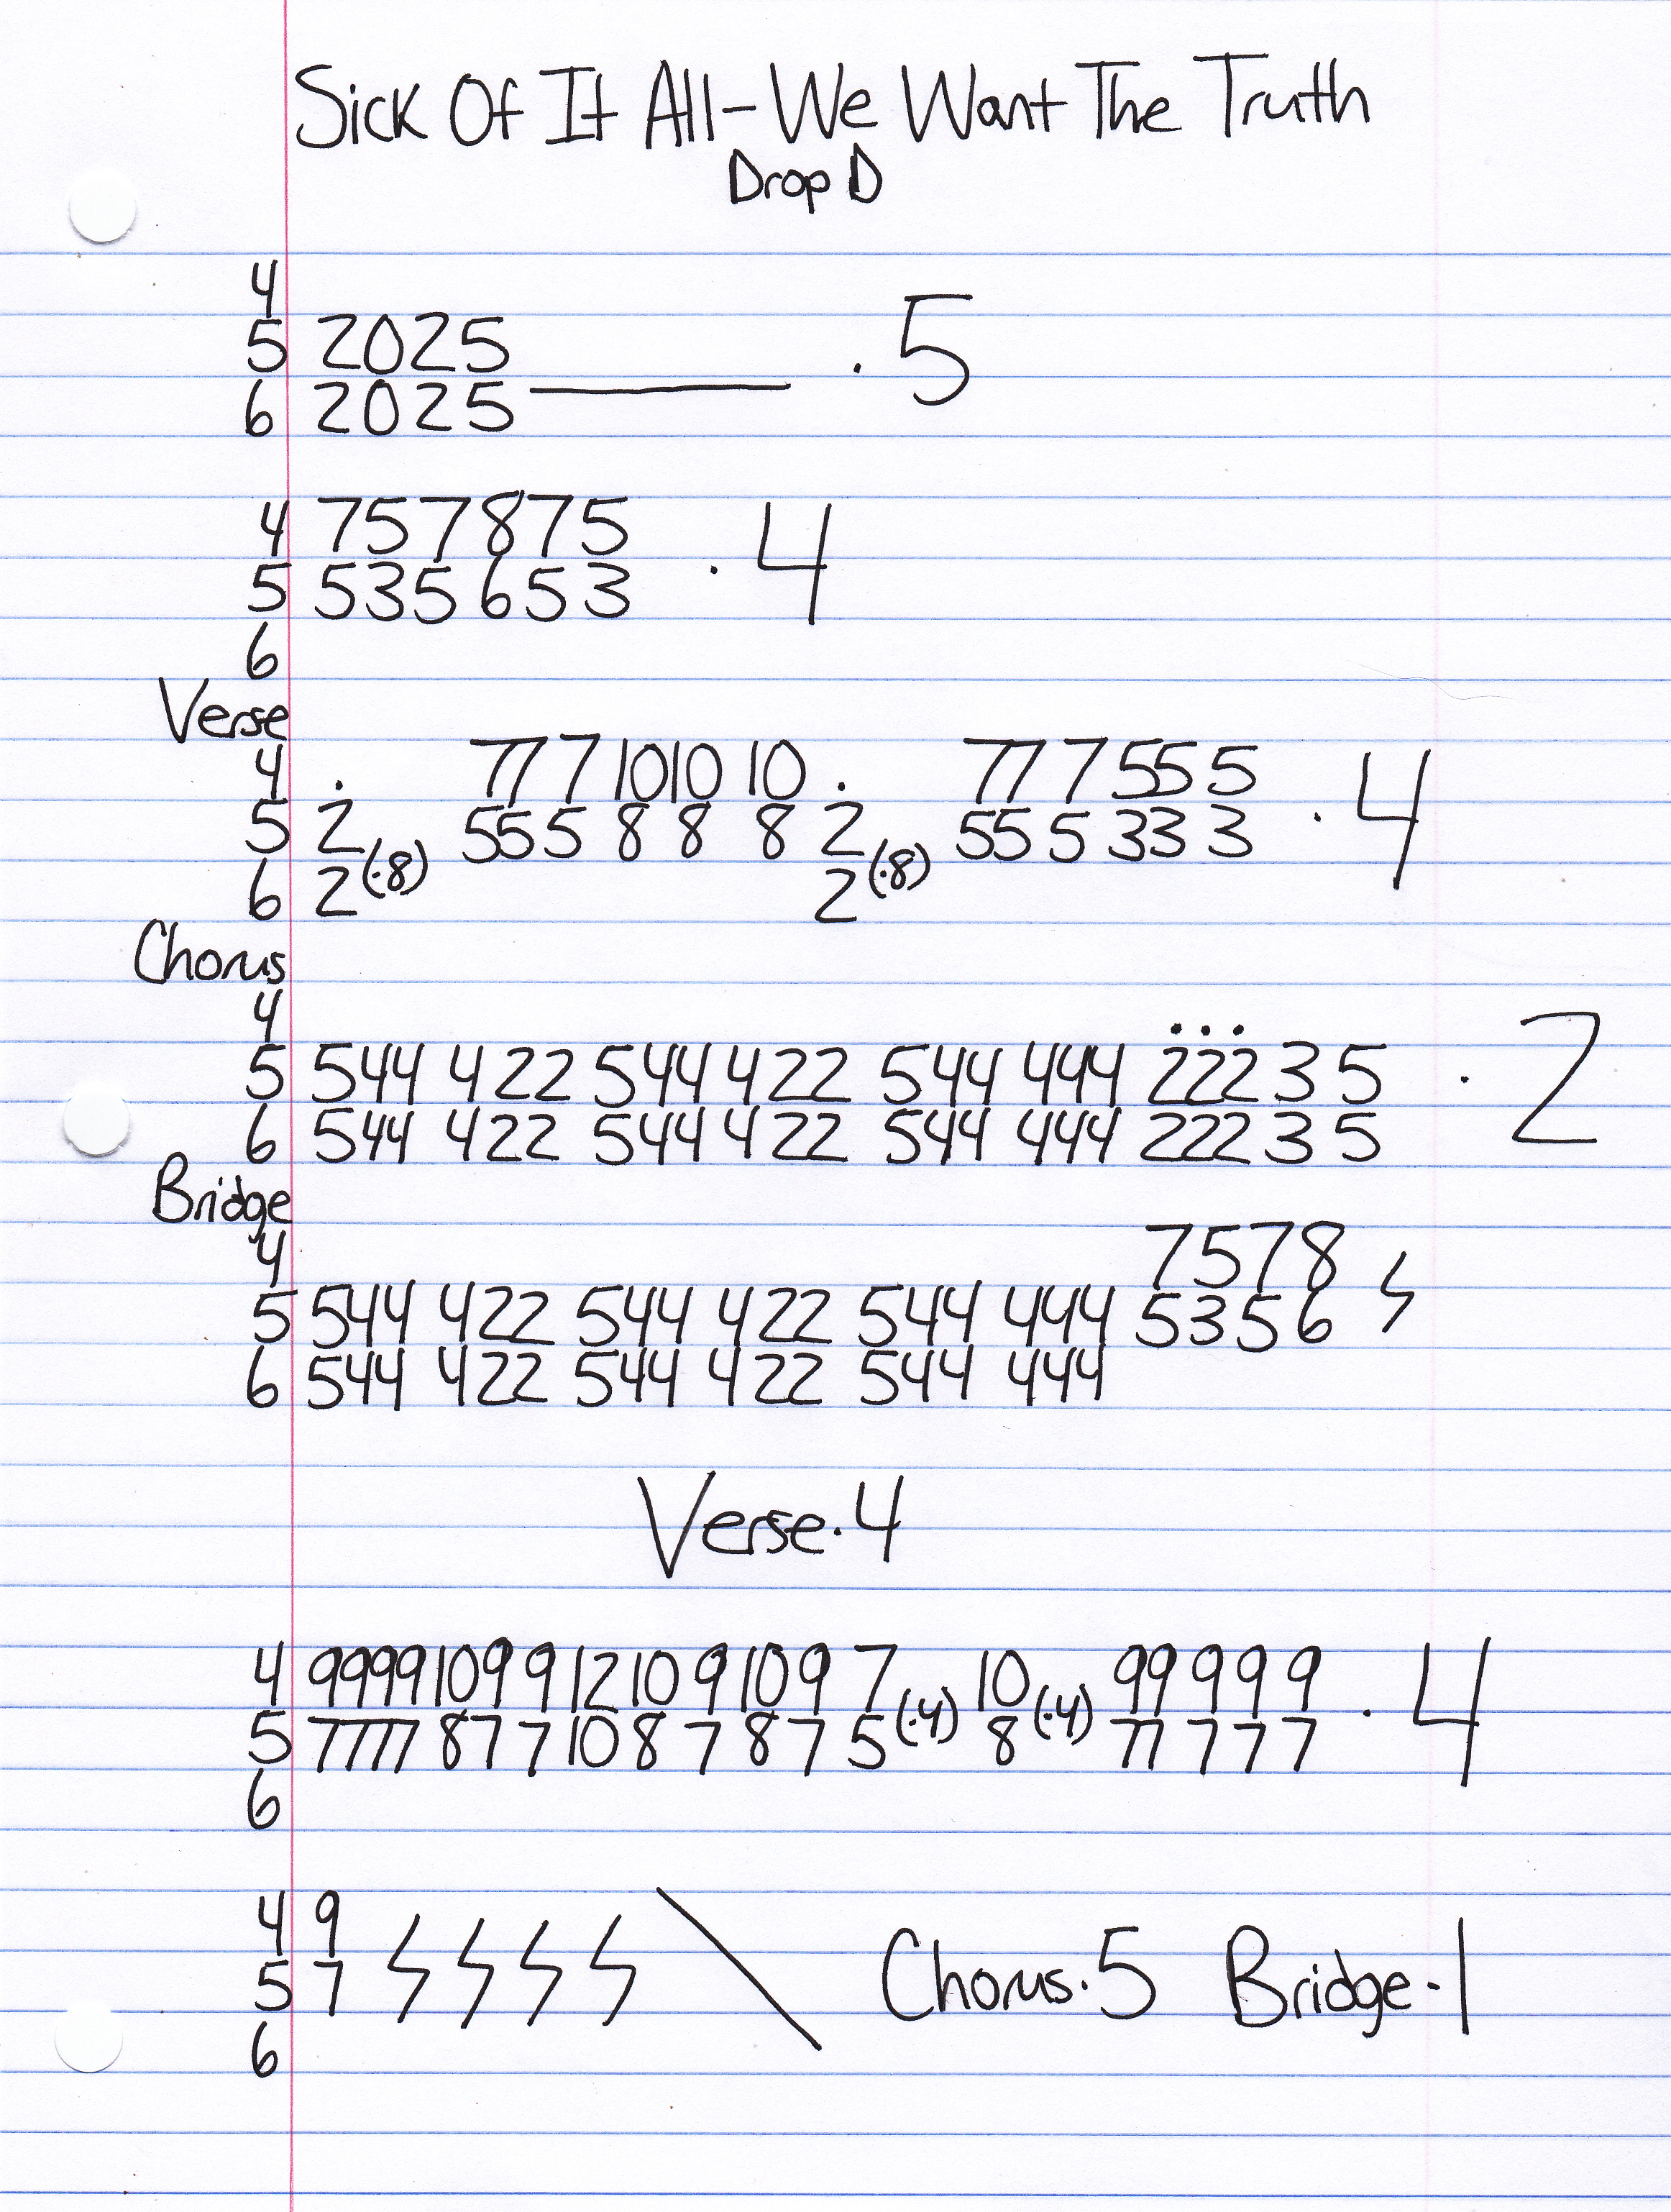 Sick Of It All - We Want The Truth
Drop D
4
5 2025
6 2025 ———— .5
4 757875
5 535653 .4
6
Verse
4 . 77 7 1010 10 . 77 7 55 5
5 2 55 5 8 8 8 2 55 5 33 3 .4
6 2 (.8) 2 (.8)
Chorus
4 ...
5 544 422 544 422 544 444 222 3 5 .2
6 544 422 544 422 544 444 222 3 5
Bridge
4 7578
5 544 422 544 422 544 444 5356
6 544 422 544 422 544 444
Verse.4
4 9999 10 9 9 12 10 9 10 9 7 (.4) 10 (.4) 99 9 9 9 .4
5 7777 8 7 7 10 8 7 8 7 5 8 77 7 7 7
6
4 9
5 7 \ Chorus.5 Bridge.1
6